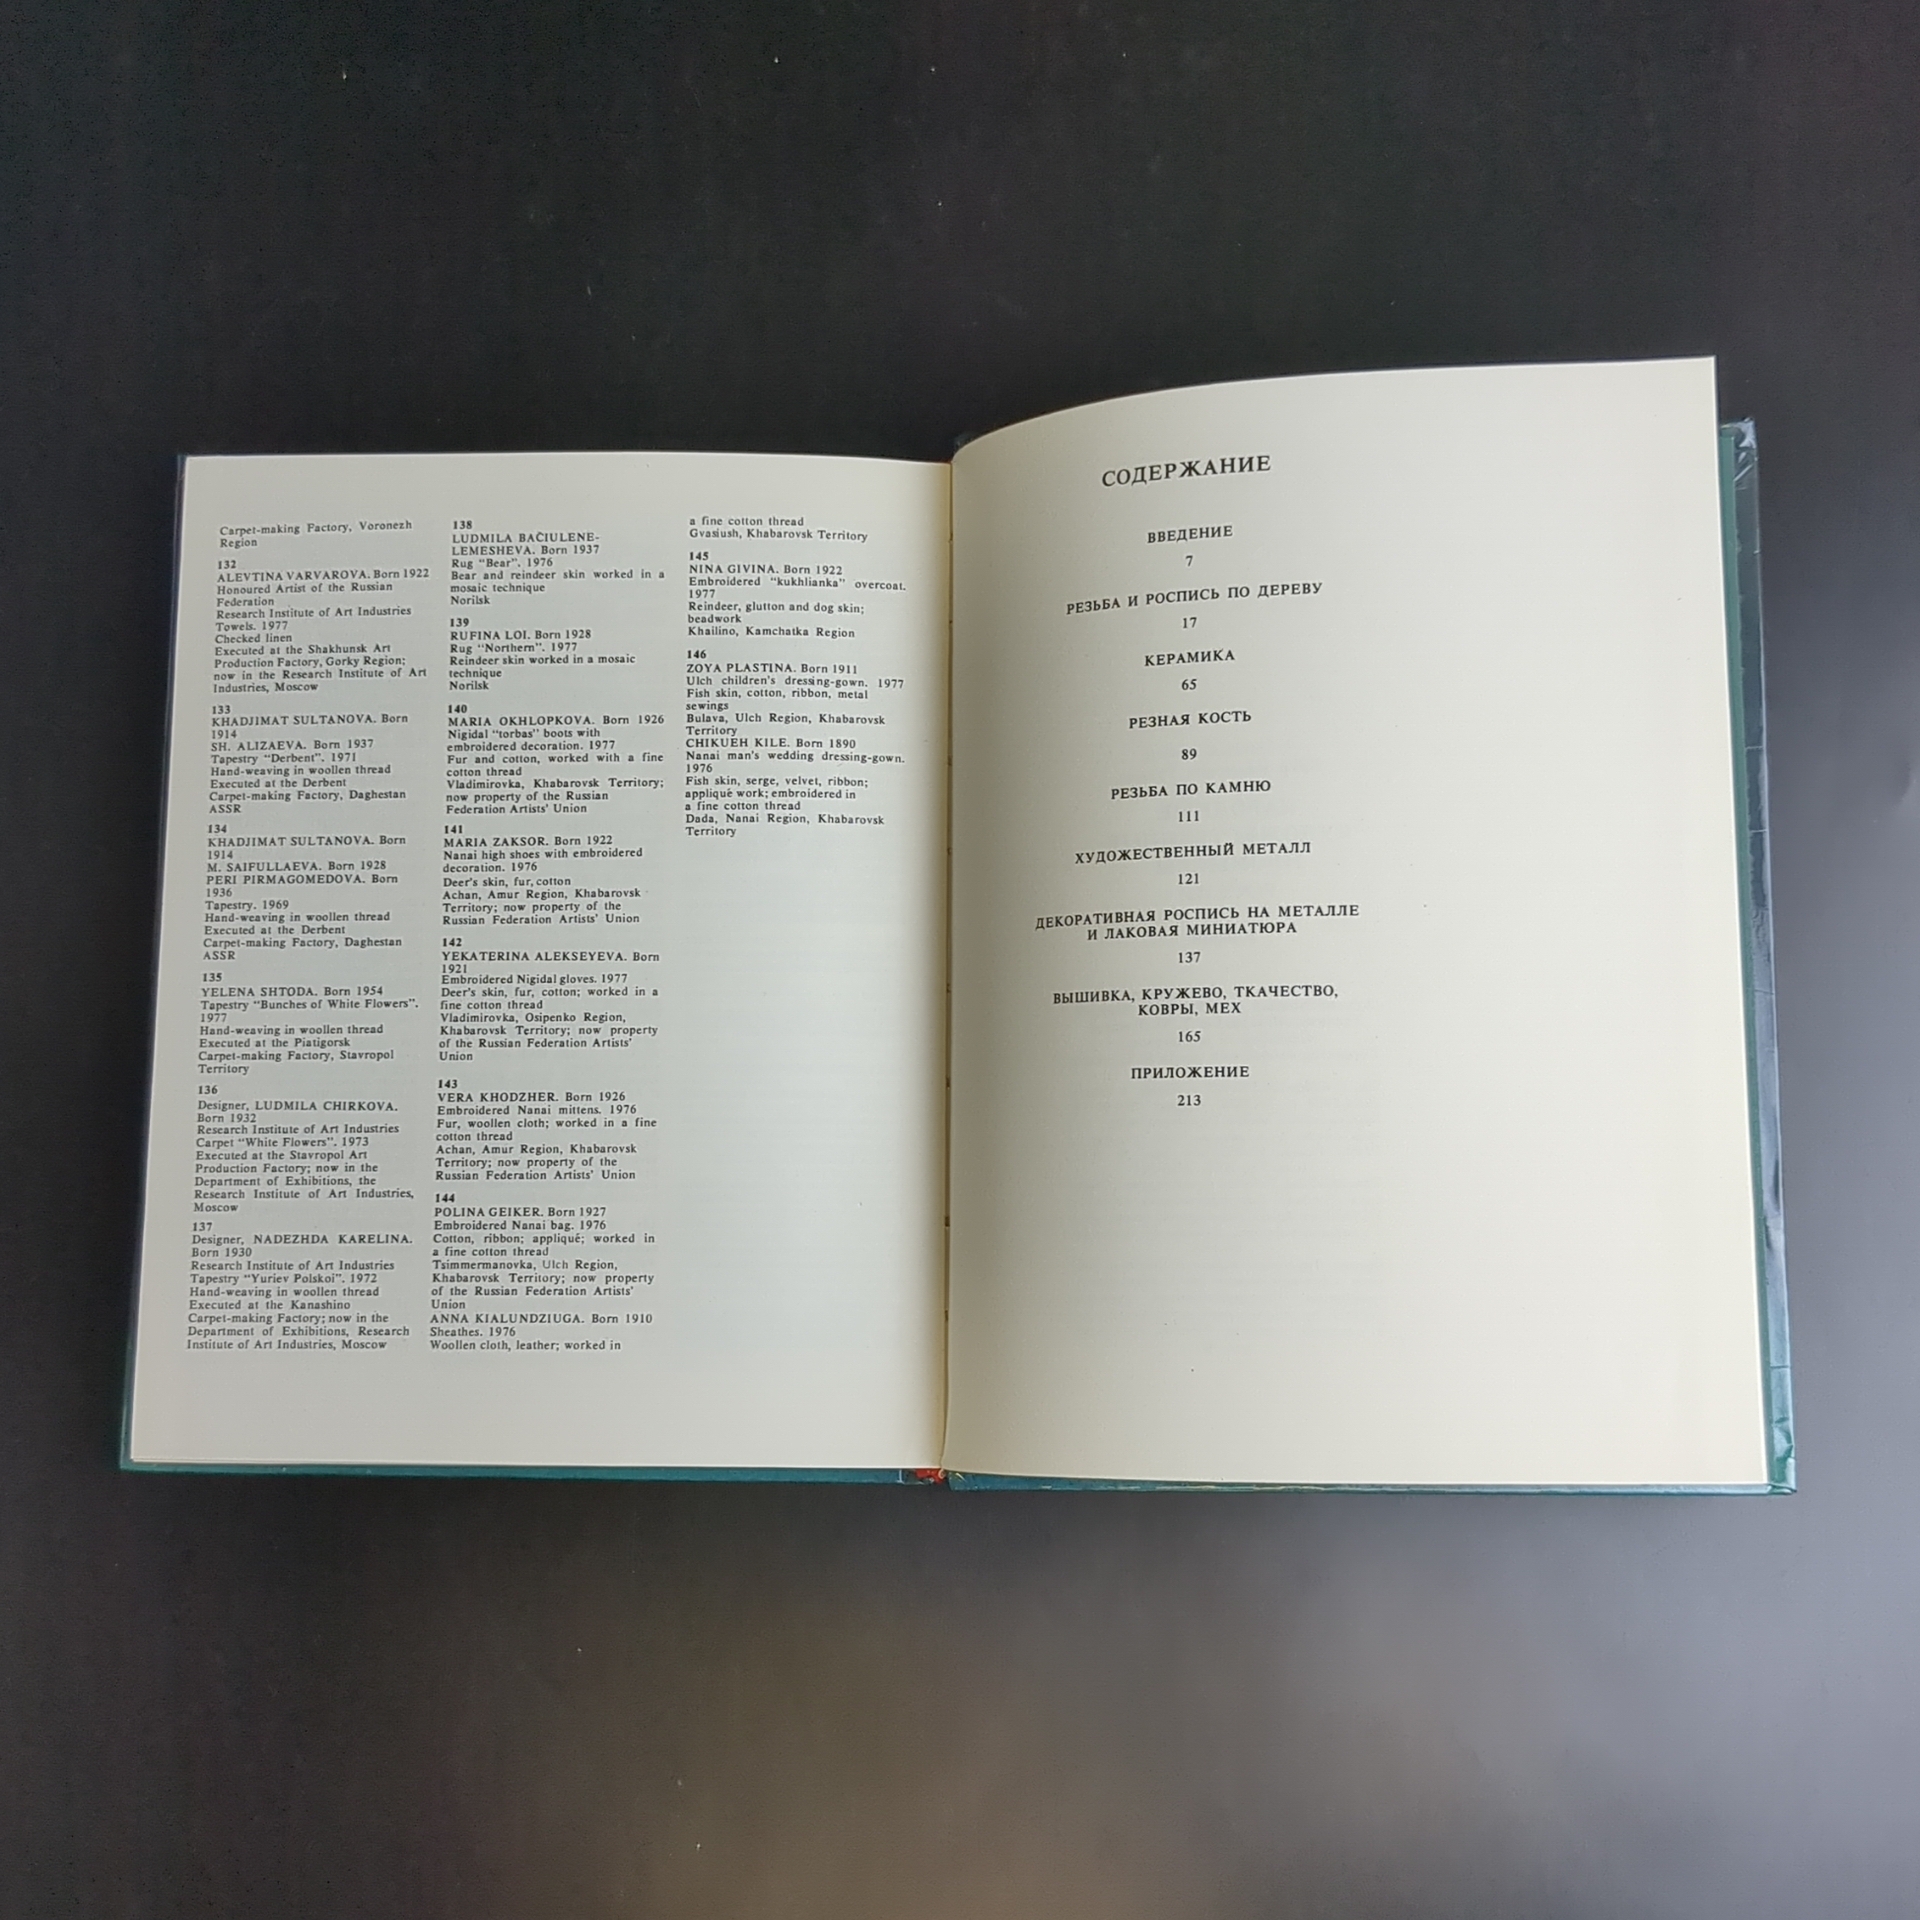 Carpet-making Factory, Voronezh
Region
132
ALEVTINA VARVAROVA. Born 1922
Honoured Artist of the Russian
Federation
Research Institute of Art Industries
Towels. 1977
Checked linen
Executed at the Shakhunsk Art
Production Factory, Gorky Region;
now in the Research Institute of Art
Industries, Moscow
133
KHADJIMAT SULTANOVA. Born
1914
SH. ALIZAEVA. Born 1937
Tapestry "Derbent". 1971
Hand-weaving in woollen thread
Executed at the Derbent
Carpet-making Factory, Daghestan
ASSR
134
KHADJIMAT SULTANOVA. Born
1914
M. SAIFULLAEVA. Born 1928
PERI PIRMAGOMEDOVA. Born
1936
Tapestry. 1969
Hand-weaving in woollen thread
Executed at the Derbent
Carpet-making Factory, Daghestan
ASSR
135
YELENA SHTODA. Born 1954
Tapestry "Bunches of White Flowers".
1977
Hand-weaving in woollen thread
Executed at the Piatigorsk
Carpet-making Factory, Stavropol
Territory
136
Designer, LUDMILA CHIRKOVA.
Born 1932
Research Institute of Art Industries
Carpet "White Flowers". 1973
Executed at the Stavropol Art
Production Factory; now in the
Department of Exhibitions, the
Research Institute of Art Industries,
Moscow
137
Designer, NADEZHDA KARELINA.
Born 1930
Research Institute of Art Industries
Tapestry "Yuriev Polskoi". 1972
Hand-weaving in woollen thread
Executed at the Kanashino
Carpet-making Factory; now in the
Department of Exhibitions, Research
Institute of Art Industries, Moscow
138
LUDMILA BAČIULENE-
LEMESHEVA. Born 1937
Rug "Bear". 1976
Bear and reindeer skin worked in a
mosaic technique
Norilsk
139
RUFINA LOI. Born 1928
Rug "Northern". 1977
Reindeer skin worked in a mosaic
technique
Norilsk
140
MARIA OKHLOPKOVA. Born 1926
Nigidal "torbas" boots with
embroidered decoration. 1977
Fur and cotton, worked with a fine
cotton thread
Vladimirovka, Khabarovsk Territory;
now property of the Russian
Federation Artists' Union
141
MARIA ZAKSOR. Born 1922
Nanai high shoes with embroidered
decoration. 1976
Deer's skin, fur, cotton
Achan, Amur Region, Khabarovsk
Territory; now property of the
Russian Federation Artists' Union
142
YEKATERINA ALEKSEYEVA. Born
1921
Embroidered Nigidal gloves. 1977
Deer's skin, fur, cotton; worked in a
fine cotton thread
Vladimirovka, Osipenko Region,
Khabarovsk Territory; now property
of the Russian Federation Artists'
Union
143
VERA KHODZHER. Born 1926
Embroidered Nanai mittens. 1976
Fur, woollen cloth; worked in a fine
cotton thread
Achan, Amur Region, Khabarovsk
Territory; now property of the
Russian Federation Artists' Union
144
POLINA GEIKER. Born 1927
Embroidered Nanai bag. 1976
Cotton, ribbon; appliqué; worked in
a fine cotton thread
Tsimmermanovka, Ulch Region,
Khabarovsk Territory; now property
of the Russian Federation Artists'
Union
ANNA KIALUNDZIUGA. Born 1910
Sheathes. 1976
Woollen cloth, leather; worked in
a fine cotton thread
Gvasiush, Khabarovsk Territory
145
NINA GIVINA. Born 1922
Embroidered "kukhlianka" overcoat.
1977
Reindeer, glutton and dog skin;
beadwork
Khailino, Kamchatka Region
146
ZOYA PLASTINA. Born 1911
Ulch children's dressing-gown. 1977
Fish skin, cotton, ribbon, metal
sewings
Bulava, Ulch Region, Khabarovsk
Territory
CHIKUEH KILE. Born 1890
Nanai man's wedding dressing-gown.
1976
Fish skin, serge, velvet, ribbon;
appliqué work; embroidered in
a fine cotton thread
Dada, Nanai Region, Khabarovsk
Territory
СОДЕРЖАНИЕ
ВВЕДЕНИЕ
7
РЕЗЬБА И РОСПИСЬ ПО ДЕРЕВУ
17
КЕРАМИКА
65
РЕЗНАЯ КОСТЬ
89
РЕЗЬБА ПО КАМНЮ
111
ХУДОЖЕСТВЕННЫЙ МЕТАЛЛ
121
ДЕКОРАТИВНАЯ РОСПИСЬ НА МЕТАЛЛЕ
И ЛАКОВАЯ МИНИАТЮРА
137
ВЫШИВКА, КРУЖЕВО, ТКАЧЕСТВО,
КОВРЫ, МЕХ
165
ПРИЛОЖЕНИЕ
213